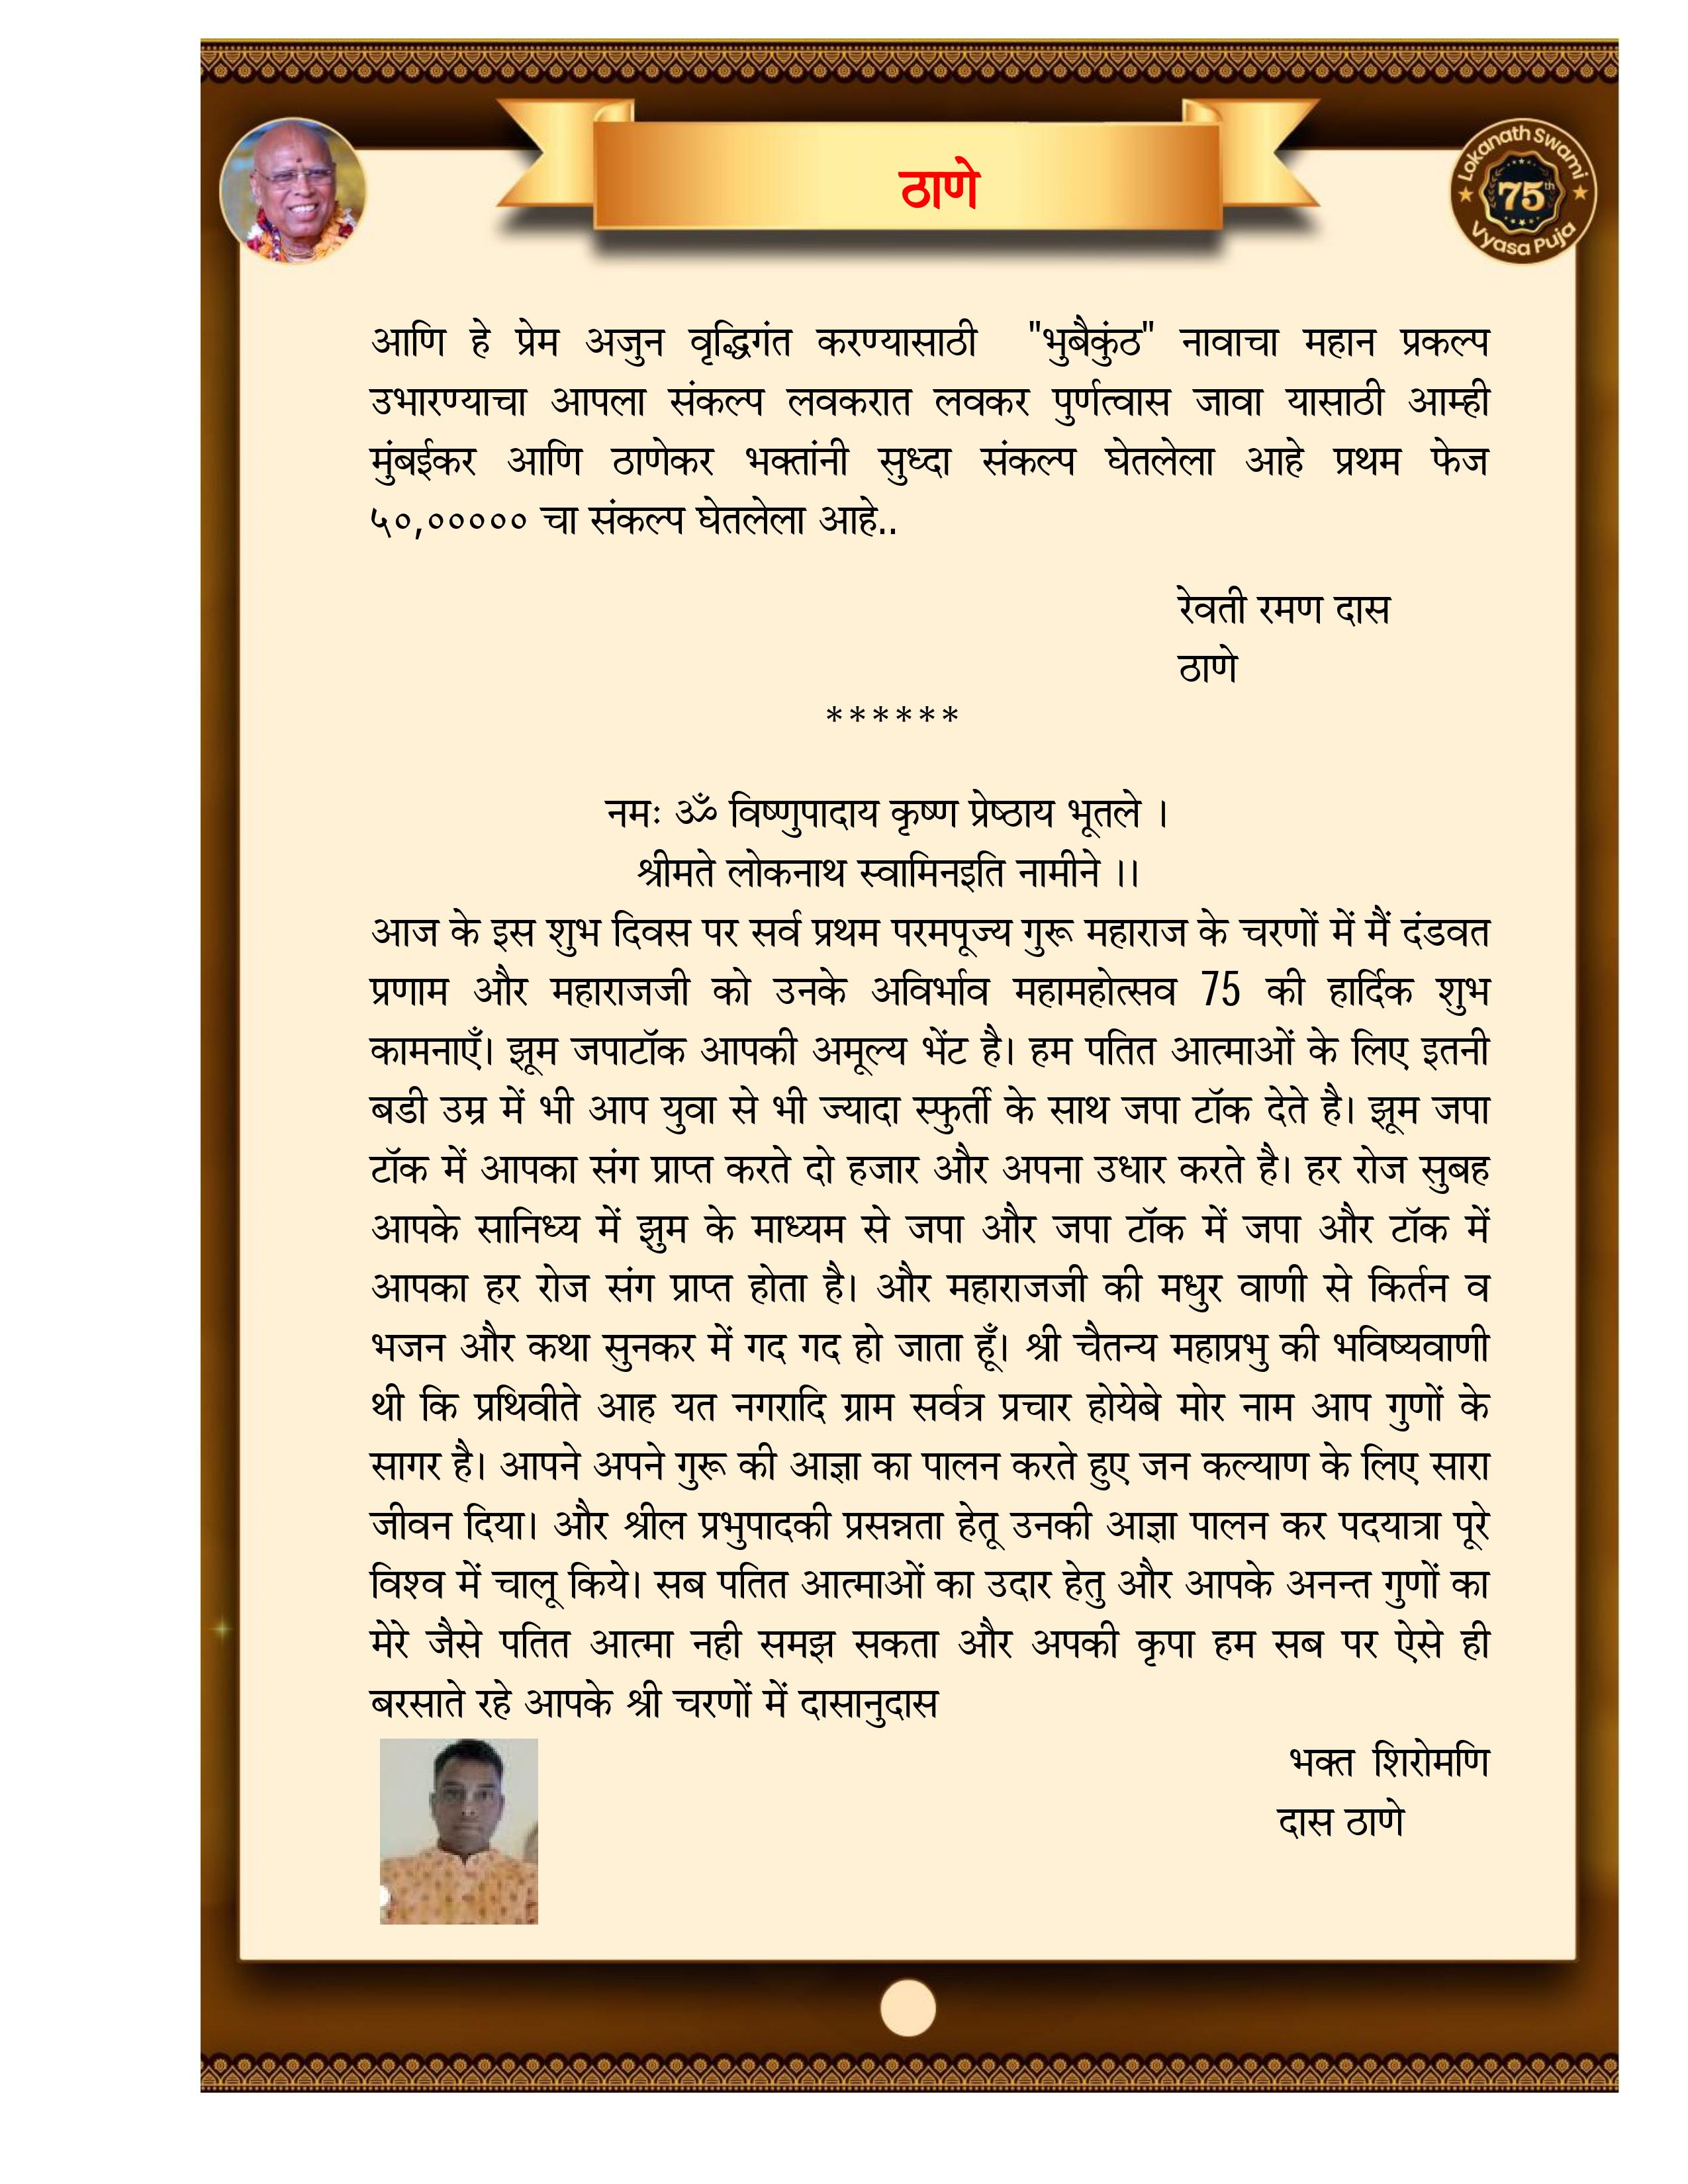 ठाणे
Lokanath Swami
75th
Vyasa Puja
आणि हे प्रेम अजुन वृद्धिगंत करण्यासाठी "भुबैकुंठ" नावाचा महान प्रकल्प
उभारण्याचा आपला संकल्प लवकरात लवकर पुर्णत्वास जावा यासाठी आम्ही
मुंबईकर आणि ठाणेकर भक्तांनी सुध्दा संकल्प घेतलेला आहे प्रथम फेज
५०,००००० चा संकल्प घेतलेला आहे..
रेवती रमण दास
ठाणे
******
नमः ॐ विष्णुपादाय कृष्ण प्रेष्ठाय भूतले ।
श्रीमते लोकनाथ स्वामिनइति नामीने ।।
आज के इस शुभ दिवस पर सर्व प्रथम परमपूज्य गुरू महाराज के चरणों में मैं दंडवत
प्रणाम और महाराजजी को उनके अविर्भाव महामहोत्सव 75 की हार्दिक शुभ
कामनाएँ। झूम जपाटॉक आपकी अमूल्य भेंट है। हम पतित आत्माओं के लिए इतनी
बडी उम्र में भी आप युवा से भी ज्यादा स्फुर्ती के साथ जपा टॉक देते है। झूम जपा
टॉक में आपका संग प्राप्त करते दो हजार और अपना उधार करते है। हर रोज सुबह
आपके सानिध्य में झुम के माध्यम से जपा और जपा टॉक में जपा और टॉक में
आपका हर रोज संग प्राप्त होता है। और महाराजजी की मधुर वाणी से किर्तन व
भजन और कथा सुनकर में गद गद हो जाता हूँ। श्री चैतन्य महाप्रभु की भविष्यवाणी
थी कि प्रथिवीते आह यत नगरादि ग्राम सर्वत्र प्रचार होयेबे मोर नाम आप गुणों के
सागर है। आपने अपने गुरू की आज्ञा का पालन करते हुए जन कल्याण के लिए सारा
जीवन दिया। और श्रील प्रभुपादकी प्रसन्नता हेतू उनकी आज्ञा पालन कर पदयात्रा पूरे
विश्व में चालू किये। सब पतित आत्माओं का उदार हेतु और आपके अनन्त गुणों का
मेरे जैसे पतित आत्मा नही समझ सकता और अपकी कृपा हम सब पर ऐसे ही
बरसाते रहे आपके श्री चरणों में दासानुदास
भक्त शिरोमणि
दास ठाणे